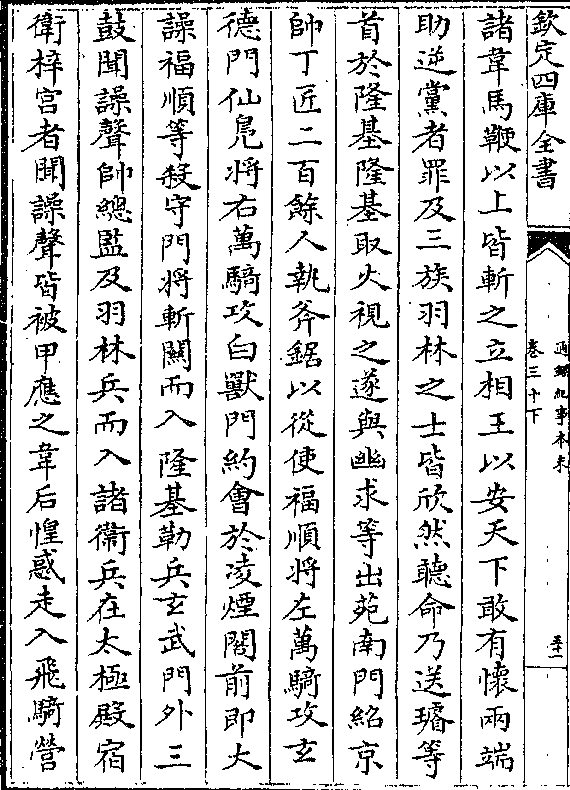 欽定四庫全書
通鑑紀事本末
卷三十下
五十一
諸韋馬鞭以上皆斬之立相王以安天下敢有懷兩端
助逆黨者罪及三族羽林之士皆欣然聽命乃送璿等
首於隆基隆基取火視之遂與幽求等出苑南門紹京
帥丁匠二百餘人執斧鋸以從使福順將左萬騎攻玄
德門仙鳧將右萬騎攻白獸門約會於凌煙閣前即大
譟福順等殺守門將斬關而入隆基勒兵玄武門外三
鼓聞譟聲帥總監及羽林兵而入諸衛兵在太極殿宿
衛梓宮者聞譟聲皆被甲應之韋后惶惑走入飛騎營